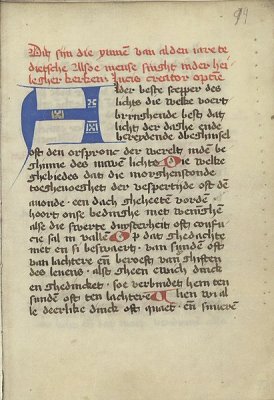 Dit sijn die ymnen van alden iare te
dietsche Alsoe mense singht inder hei
legher kerken Lucis creator optime
Alder beste scepper des
lichts die welke voert
bringhende best dat
licht der daghe ende
beghinsel
oft den orspronc der werelt mids be
ghinne des nuwen lichts Die welke
ghebiedes dat die morghenstonde
toeghevoeght der vespertijde oft den
auonde een dach gheheete vordē
hoort onse bedinghe met weninghē
alse die swerte duysterheit oft confu
cie sal in vallē Op dat ghedachte
met en si beswaert van sunden oft
van lachtere en beroeft van ghiften
des levens alst gheen ewich dinck
en ghedincket soe verbindet hem ten
sunden oft ten lachtere Alien wi al
le deerlike dinck oft quaet en suuerē